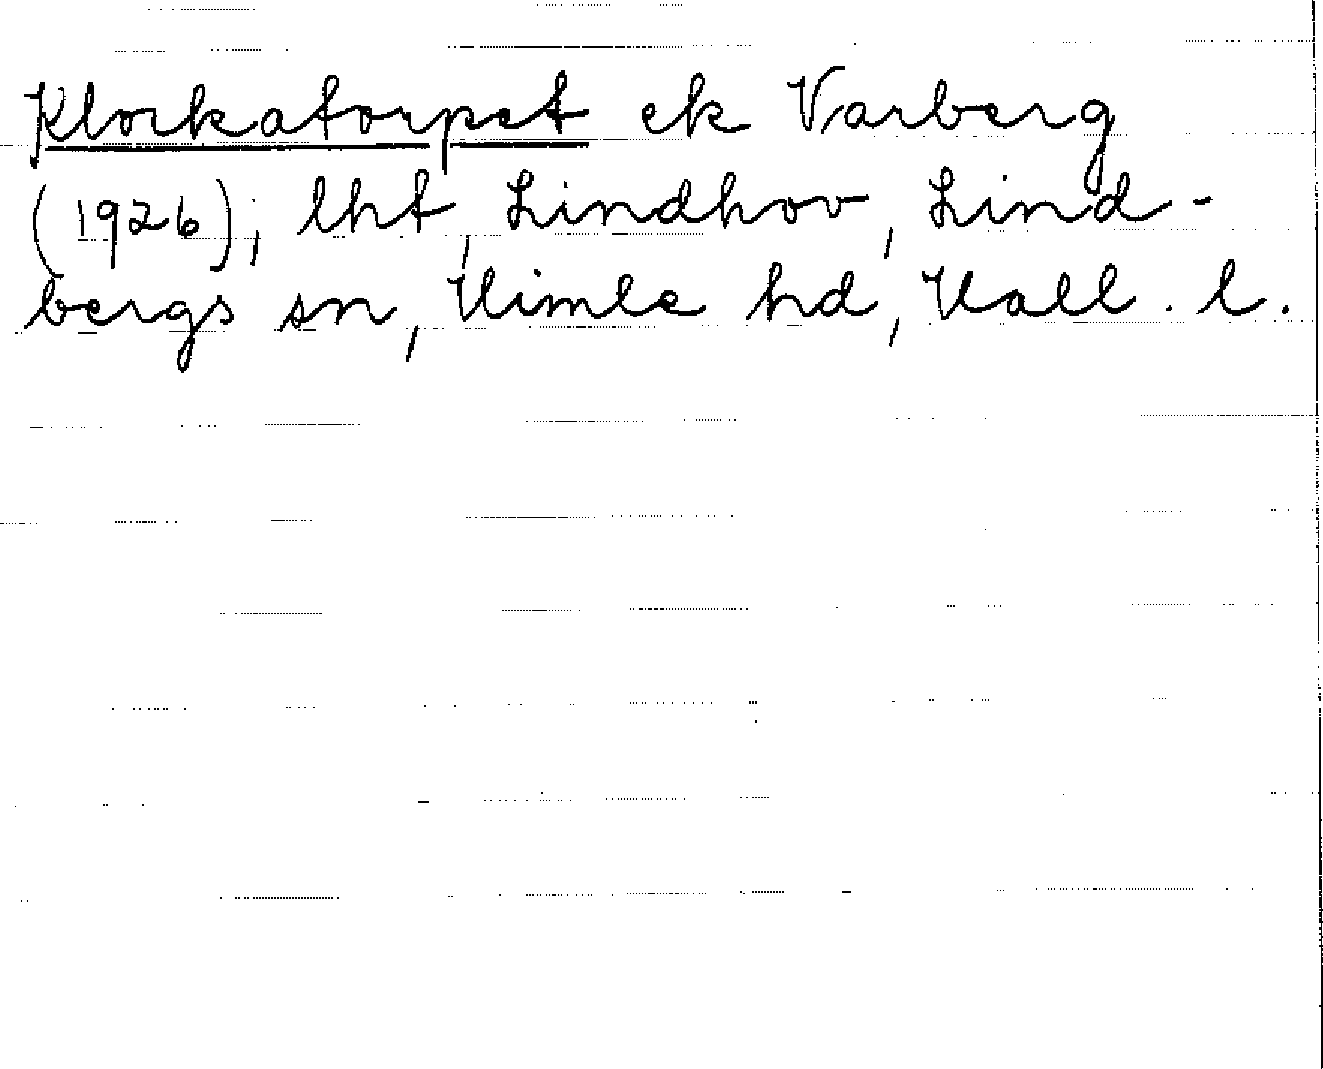 Klockatorpet ek Varberg
(1926); lht, Lindhov, Lind-
bergs sn, Himle hd, Hall. l.